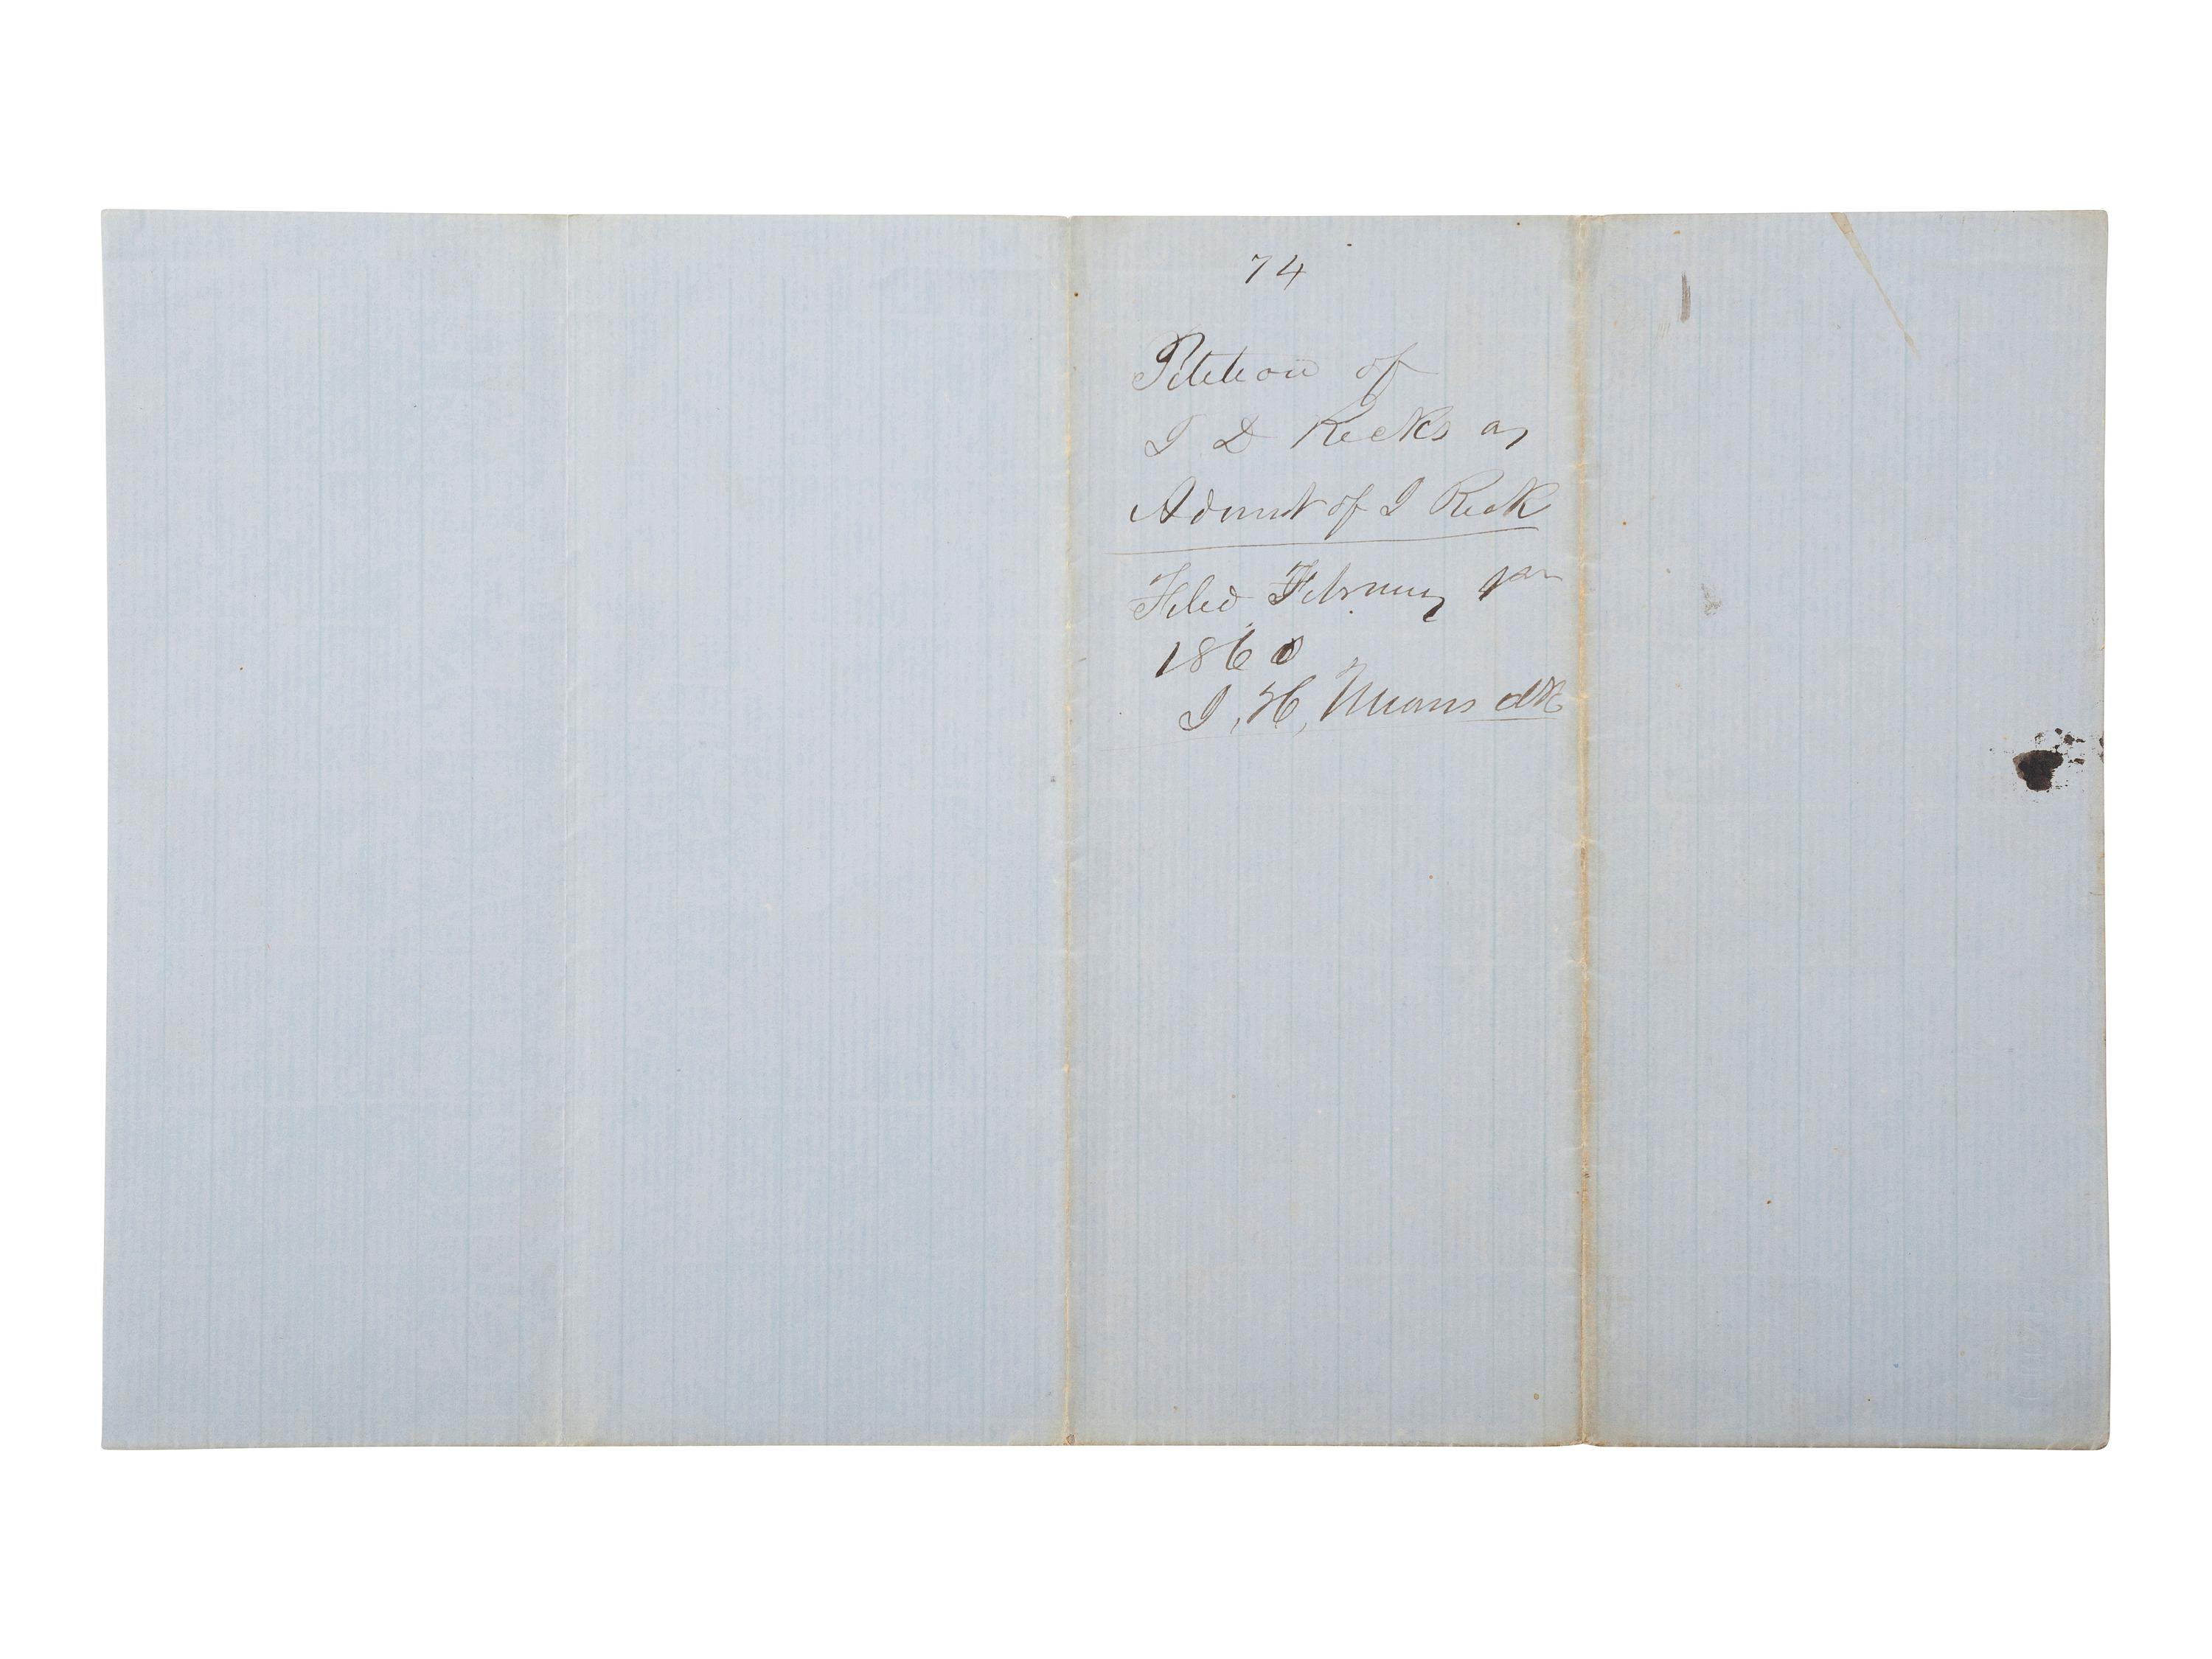 74
Petition of
J D Recks as
Admr of J Reck
Filed February 1st
1860
J. H. Means clk